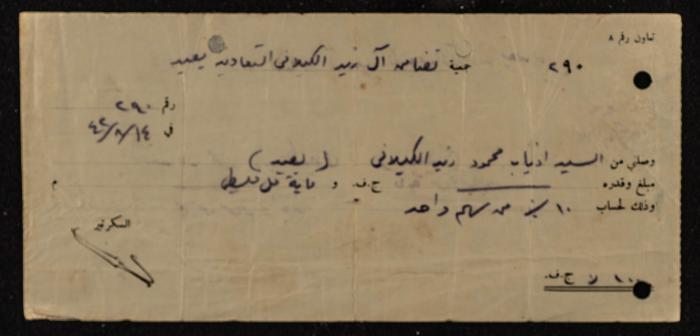 تعاون رقم ٨
٢٩٠ جمعية تضامن آل زيد الكيلاني التعاونية يعبد
رقم ٢٩٠
في ١٤/٨/٤٢
وصلني من السيد اذياب محمود زيد الكيلاني (يعبد)
مبلغ وقدره ج.ف. و ماية مل فلسطيني
وذلك لحساب ١٠ ٪ من سهم واحد
السكرتير
ج.ف.